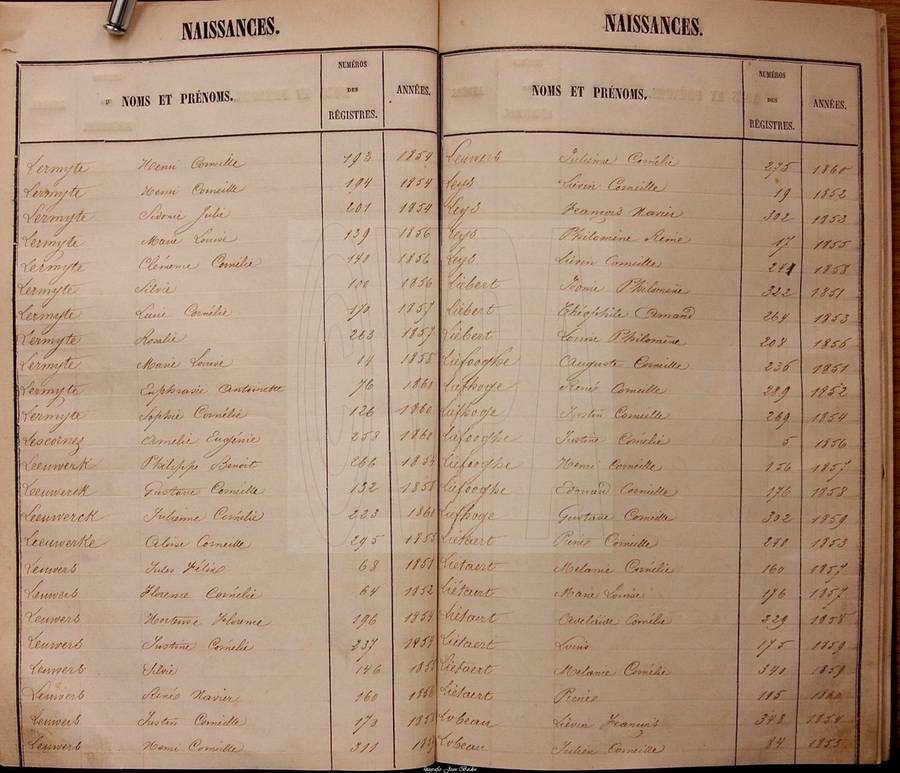 NAISSANCES.
NOMS ET PRÉNOMS. NUMÉROS DES RÉGISTRES. ANNÉES.
Lermyte Henri Corneille 193 1854
Lermyte Henri Corneille 194 1854
Lermyte Sidonie Julie 201 1854
Lermyte Marie Louise 139 1856
Lermyte Clémence Cornélie 140 1856
Lermyte Silvie 100 1856
Lermyte Lucie Cornélie 170 1857
Lermyte Rosalie 263 1857
Lermyte Marie Louise 14 1858
Lermyte Euphrasie Antoinette 76 1860
Lermyte Sophie Cornélie 126 1860
Lescornez Amelie Eugénie 258 1860
Leeuwerk Philippe Benoit 266 1854
Leeuwerck Gustave Corneille 132 1858
Leeuwerck Julienne Cornélie 223 1860
Leeuwerke Aloïse Corneille 295
Leuwers Jules Félix 68 1851
Leuwers Florence Cornélie 64 1852
Leuwers Hortense Florence 196 1854
Leuwers Justine Cornélie 237 1854
Leuwers Silvie 146
Leuwers Renée Xavier 160 1856
Leuwers Justin Corneille 170
Leuwers Henri Corneille 311
NAISSANCES.
NOMS ET PRÉNOMS. NUMÉROS DES RÉGISTRES. ANNÉES.
Leuwers Julienne Cornélie 275 1860
Leys Liévin Corneille 19 1852
Leys François Xavier 302 1853
Leys Philomène Reine 17 1855
Leys Liévin Corneille 241 1858
Liébert Philomène 322 1851
Liébert Théophile Amand 264 1853
Liébert Louise Philomène 208 1856
Liefooghe Auguste Corneille 236 1851
Liefhoge René Corneille 289 1852
Liefhoge Justin Corneille 269 1854
Liefooghe Justine Cornélie 5 1856
Liefooghe Henri Corneille 156 1857
Liefooghe Edouard Corneille 176 1858
Liefhoge Gustave Corneille 302 1859
Liétaert René Corneille 240 1853
Liétaert Melanie Cornélie 160 1857
Liétaert Marie Louise 176 1857
Liétaert Adelaïde Cornélie 229 1858
Liétaert Louis 175 1859
Liétaert Melanie Cornélie 340 1859
Liétaert René 185 1860
Lobeau Liévin François 348 1854
Lobeau Julien Corneille 84 1855